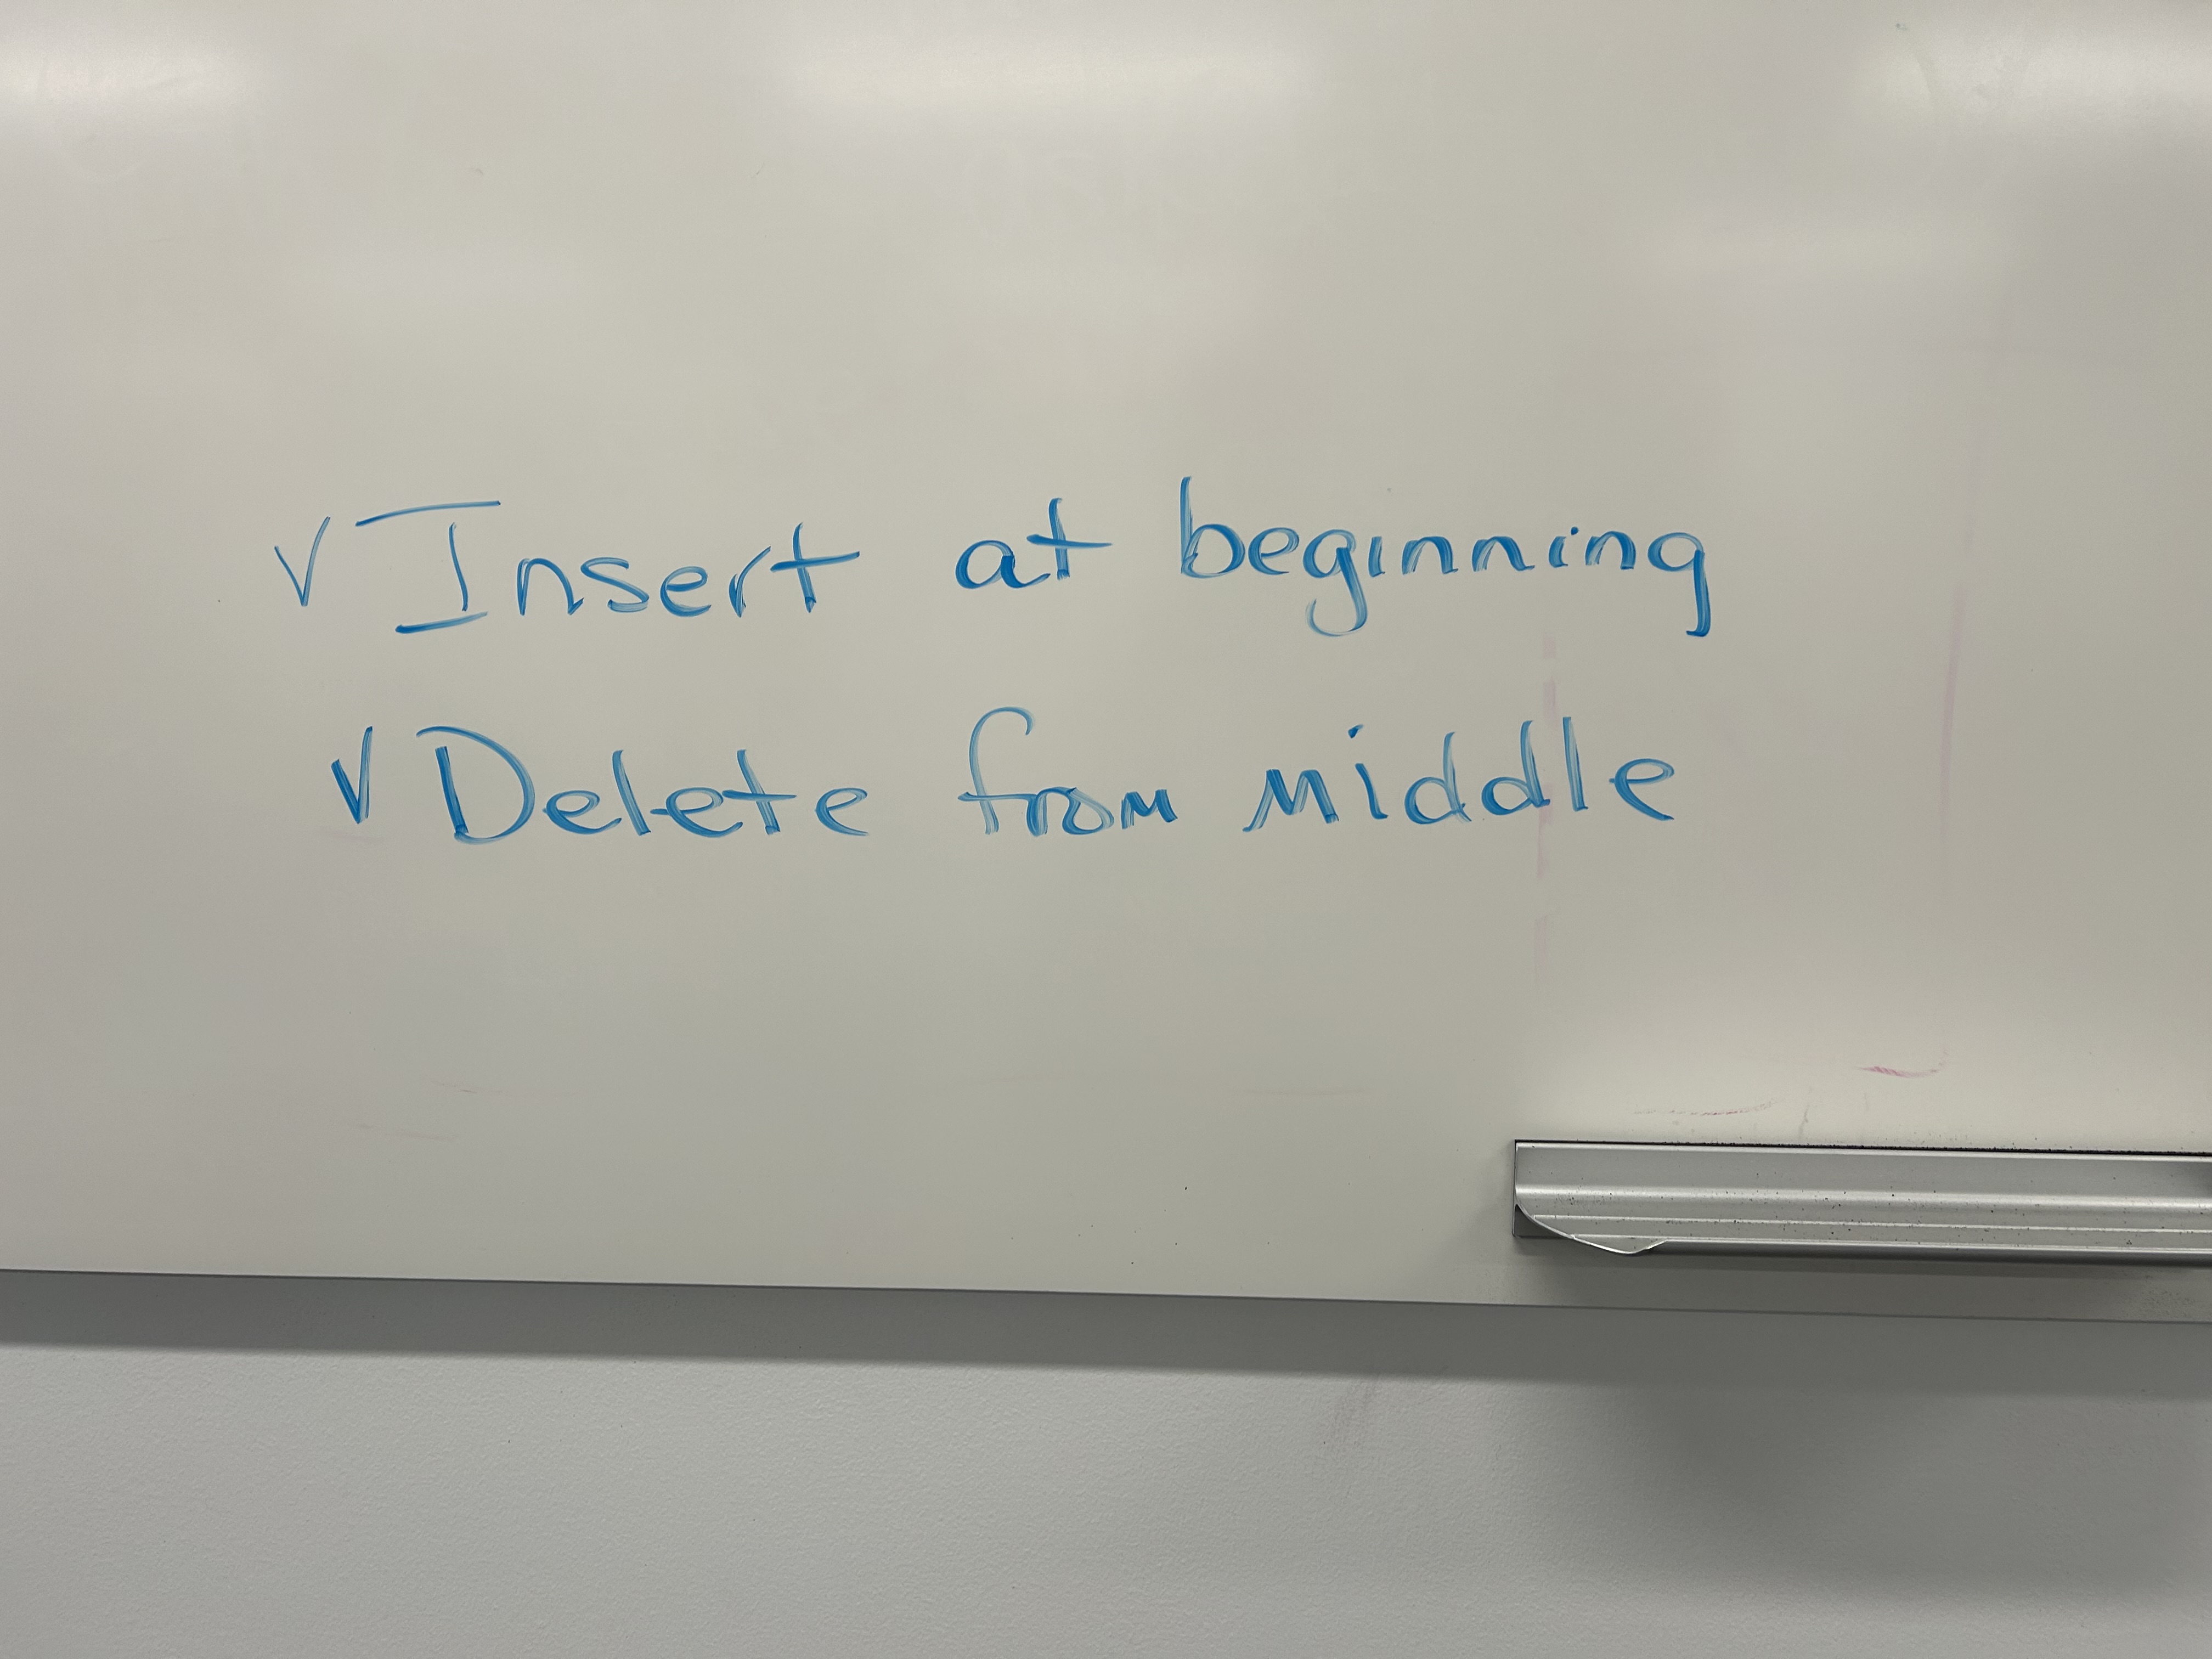 ✓ Insert at beginning
✓ Delete from middle